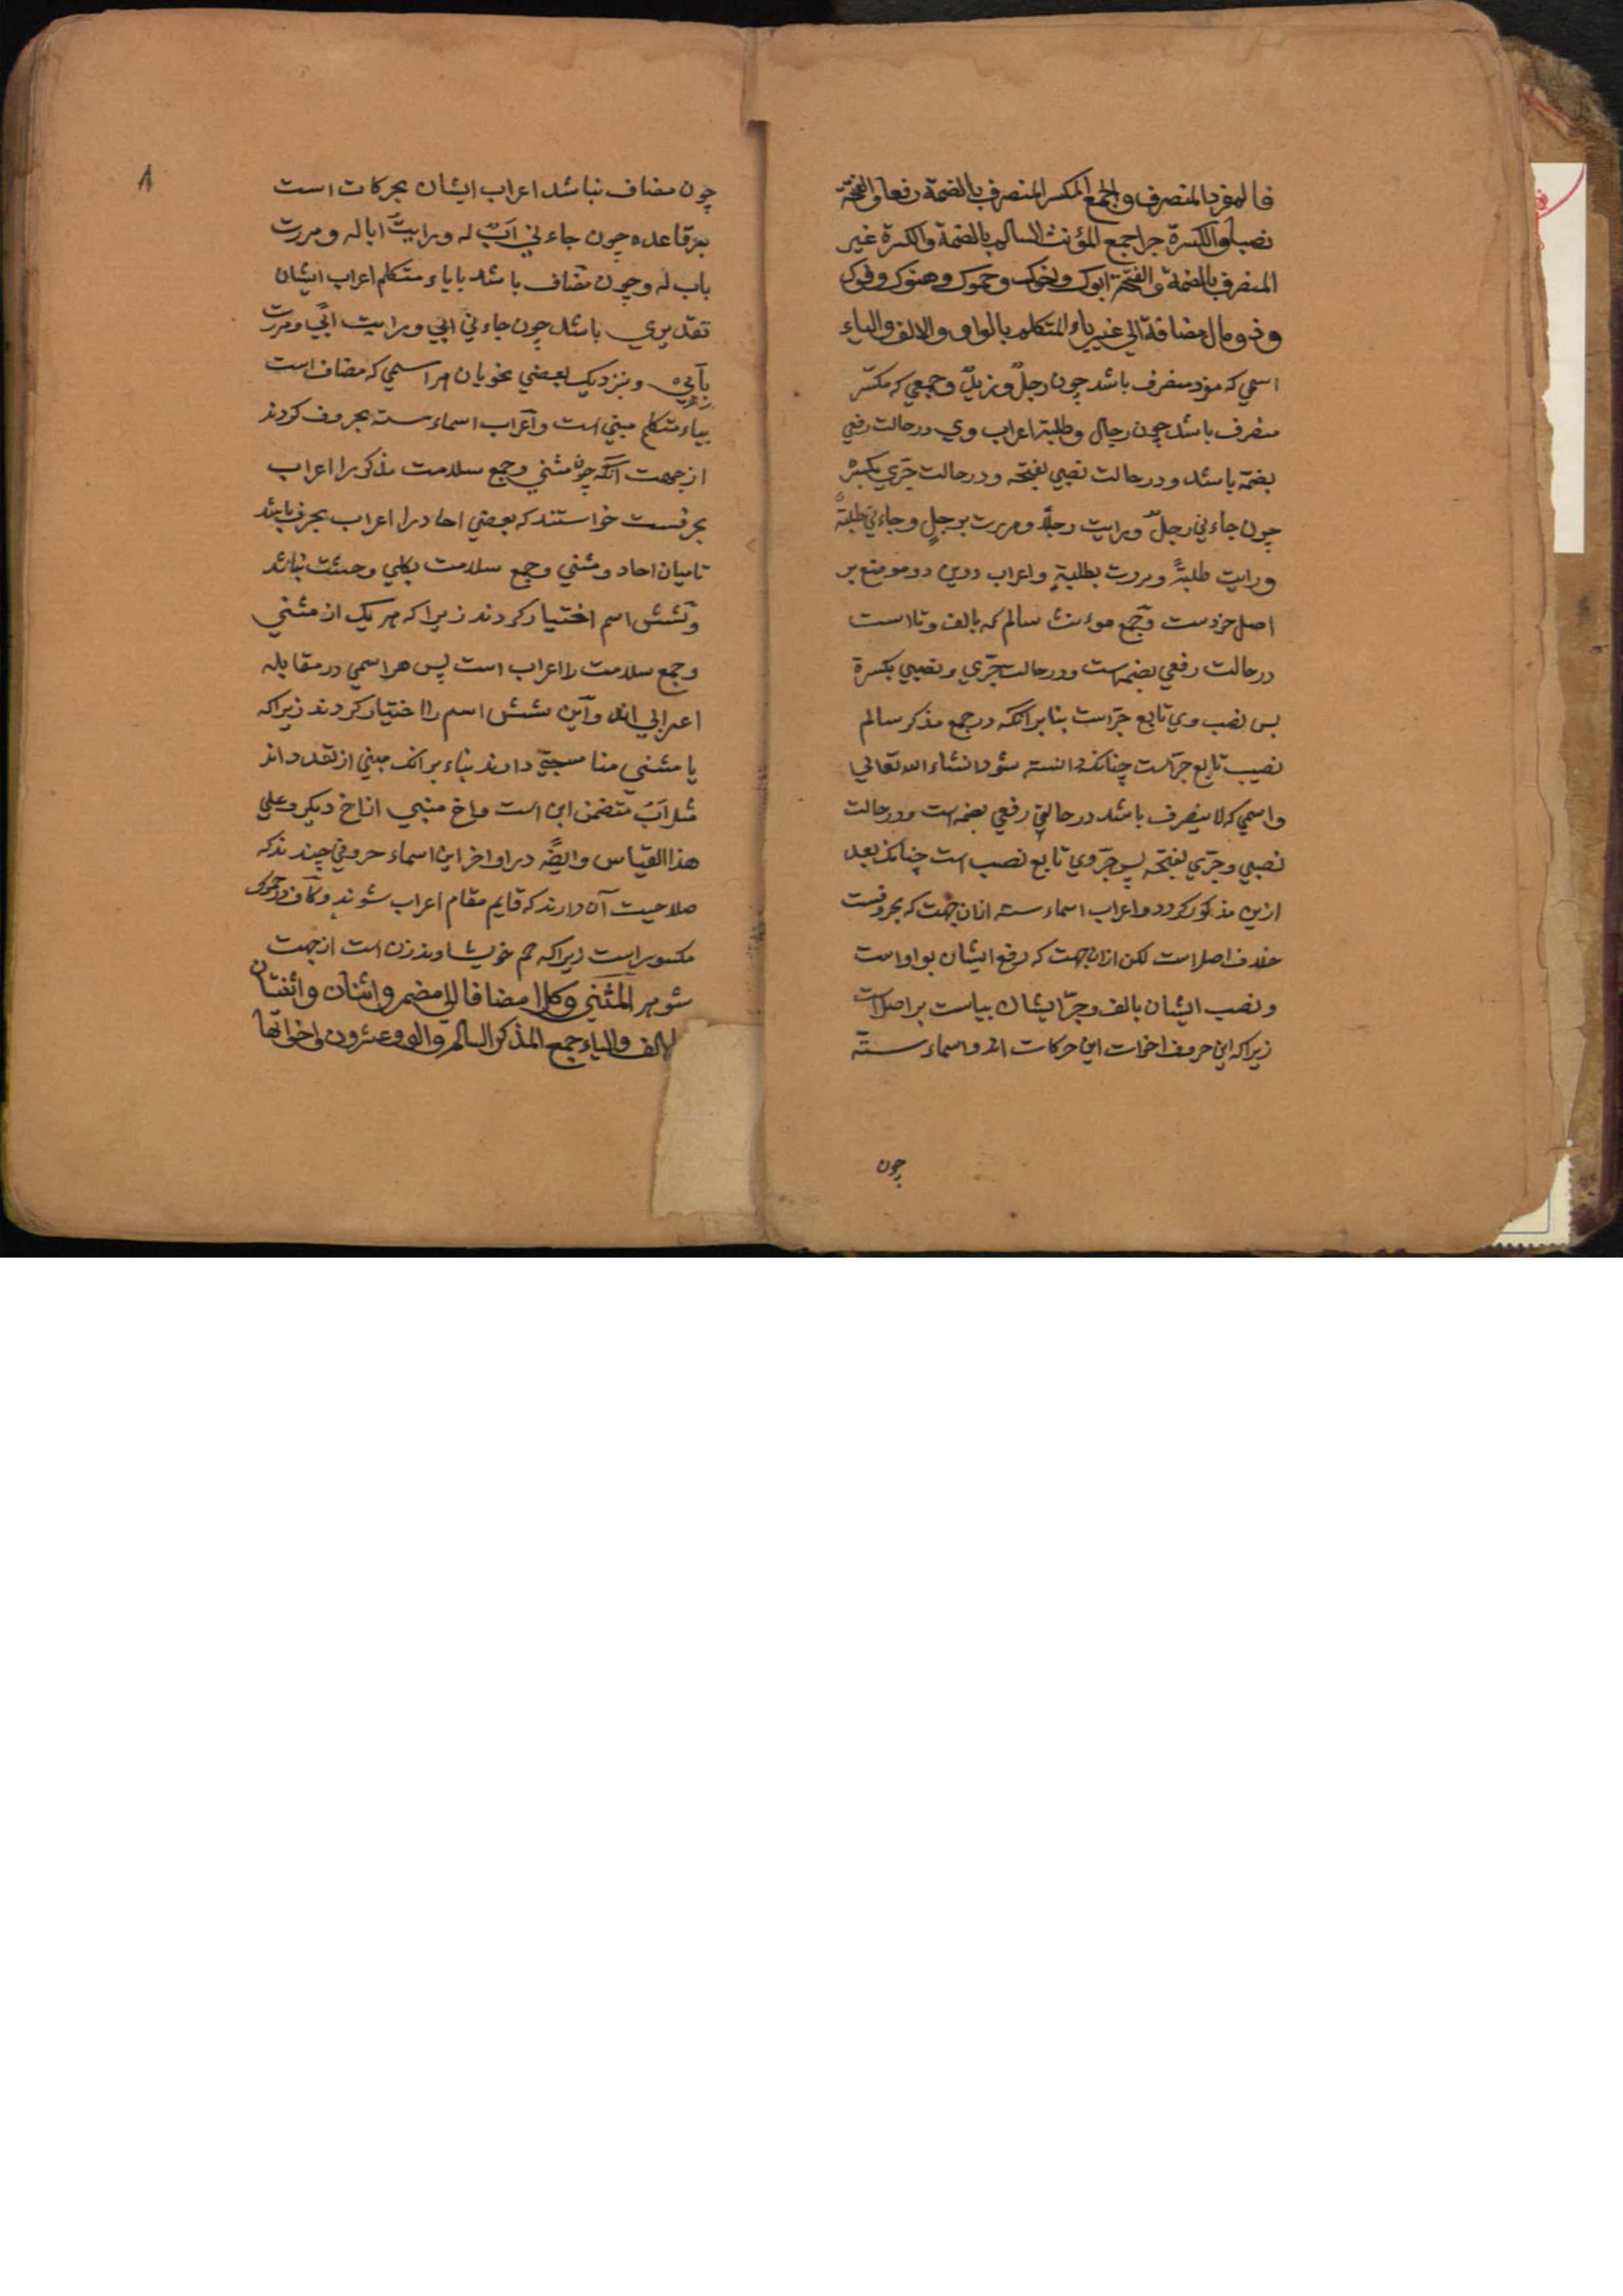 فالمفرد المنصرف والجمع المکسر المنصرف بالضمة رفعا والفتحة
نصبا والکسرة جرا جمع المؤنث السالم بالضمة والکسرة غیر
المنصرف بالضمة والفتحة ابوک واخوک وحموک وهنوک وفوک
وذو مال مضافة الی غیر یاء المتکلم بالواو والالف والیاء
اسمی که مفرد منصرف باشد چون رجلٌ وزیدٌ وجمعی که مکسّر
منصرف باشد چون رجال وطلبة اعراب وی در حالت رفعی
بضمّه باشد و در حالت نصبی بفتحه و در حالت جرّی بکسره
چون جاءنی رجلٌ ورایت رجلاً ومررت برجلٍ وجاءنی طلبةٌ
ورایت طلبةً ومررت بطلبةٍ واعراب درین دو موضع بر
اصل خودست وجمع موءنث سالم که بالف وتا است
در حالت رفعی بضمه است ودر حالت جرّی ونصبی بکسرة
بس نصب وی تابع جرّ است بنا بر آنکه در جمع مذکر سالم
نصب تابع جرّ است چنانکه دانسته شود انشاء الله تعالی
واسمی که لا ینصرف باشد در حالتی رفعی بضمه است ودر حالت
نصبی وجرّی بفتحه پس جرّ وی تابع نصب است چنانکه بعد
ازین مذکور کردد واعراب اسماء سته ازان جهت که بحروفست
خلاف اصل است لکن ازان جهت که رفع ایشان بواو است
ونصب ایشان بالف وجرّ ایشان بیاست بر اصل است
زیرا که این حروف اخوات این حرکات اند واسماء ستّه
چون
۸
چون مضاف نباشد اعراب ایشان بحرکات است
بر قاعده چون جاءنی ابٌ له ورایتُ ابا له ومررت
باب له وچون مضاف باشد بایاء متکلم اعراب ایشان
تقدیری باشد چون جاءنی ابی ورایت ابی ومررت
بأبی ونزدیک بعضی نحویان هر اسمی که مضاف است
بیاء متکلم مبنی است واعراب اسماء سته بحروف کردند
از جهت آنکه چون مثنی وجمع سلامت مذکر را اعراب
بحرفست خواستند که بعضی احاد را اعراب بحرف باشد
تا میان احاد ومثنی وجمع سلامت بکلی وحشت نباشد
وشش اسم اختیار کردند زیرا که هر یک از مثنی
وجمع سلامت را اعراب است پس هر اسمی در مقابله
اعرابی اند واین شش اسم را اختیار کردند زیرا که
یا مثنی مناسبتی دارند بناء بر آنکه مبنی از تعدد اند
مثل ابٌ متضمن ابن است واخ مبنی از اخ دیکر وعلی
هذا القیاس وایضًا در اواخر این اسماء حروفی چند ندکه
صلاحیت آن دارند که قایم مقام اعراب شوند وکاف در حموک
مکسور است زیرا که حم خویشاوند زن است از جهت
شوهر المثنی وکلا مضافا الی مضمر واثنان واثنتان
بالالف والیاء جمع المذکر السالم والو وعشرون واخواتها